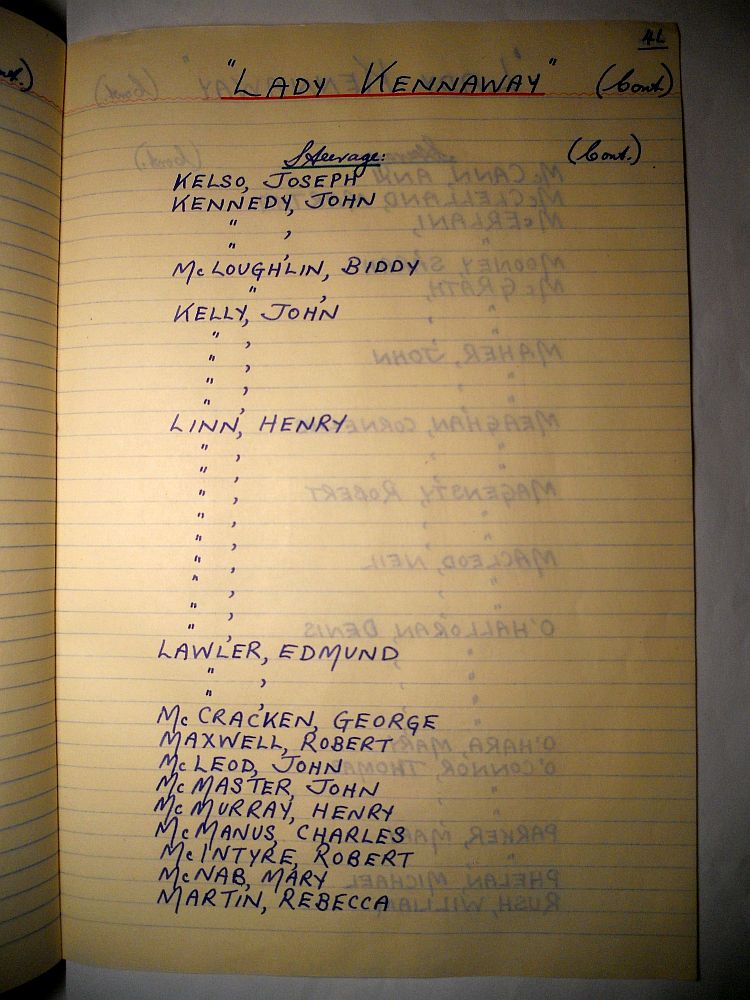 "LADY KENNAWAY" (Cont.)
Steerage: (Cont.)
KELSO, JOSEPH
KENNEDY, JOHN
" ,
" ,
McLOUGHLIN, BIDDY
" ,
KELLY, JOHN
" ,
" ,
" ,
" ,
LINN, HENRY
" ,
" ,
" ,
" ,
" ,
" ,
" ,
" ,
" ,
LAWLER, EDMUND
" ,
" ,
McCRACKEN, GEORGE
MAXWELL, ROBERT
McLEOD, JOHN
McMASTER, JOHN
McMURRAY, HENRY
McMANUS, CHARLES
McINTYRE, ROBERT
McNAB, MARY
MARTIN, REBECCA